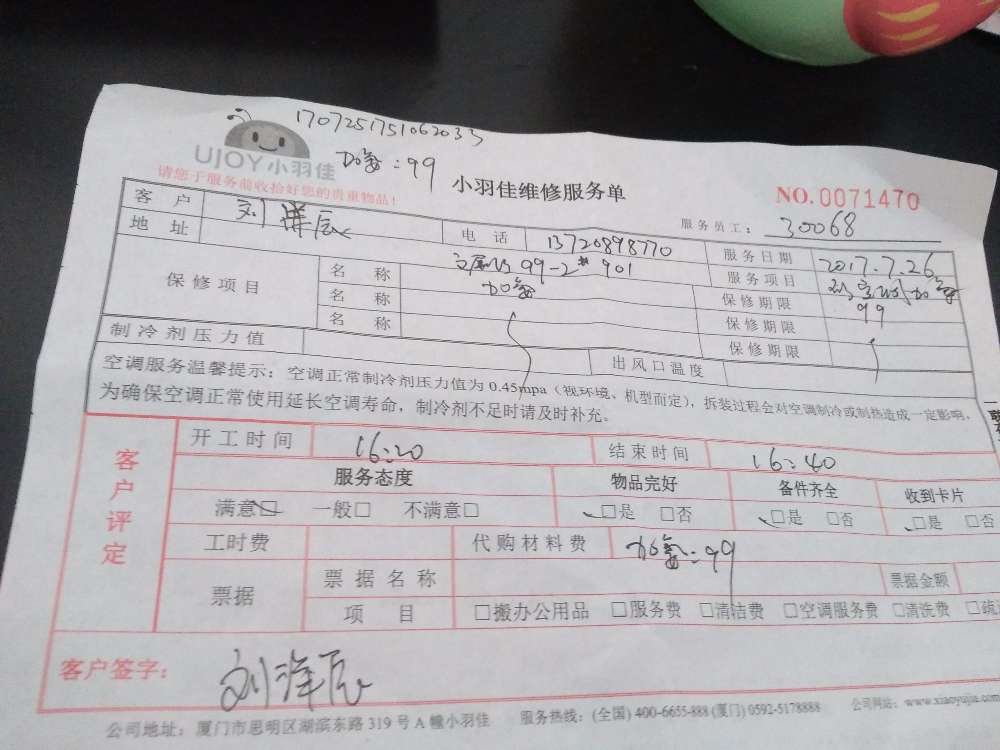 1707251751062033
UJOY小羽佳
加氟:99
请您于服务前收拾好您的贵重物品!
小羽佳维修服务单
NO.0071470
服务员工: 30068
客户 刘洋辰 电话 13720898770 服务日期 2017.7.26
地址 99-2# 901 服务项目 加氟
保修项目 名称 加氟 保修期限 99
名称 保修期限
名称 保修期限
制冷剂压力值 出风口温度
空调服务温馨提示: 空调正常制冷剂压力值为 0.45mpa (视环境、机型而定), 拆装过程会对空调制冷或制热造成一定影响,
为确保空调正常使用延长空调寿命, 制冷剂不足时请及时补充。
客户评定
开工时间 16:20 结束时间 16:40
服务态度 物品完好 备件齐全 收到卡片
满意□ 一般□ 不满意□ □是 □否 □是 □否 □是 □否
工时费 代购材料费 加氟:99
票据 票据名称 票据金额
项目 □搬办公用品 □服务费 □清洁费 □空调服务费 □清洗费 □疏
客户签字: 刘洋辰
公司地址: 厦门市思明区湖滨东路 319 号 A 幢小羽佳 服务热线: (全国) 400-6655-888 (厦门) 0592-5178888 公司网站: www.xiaoyujia.com